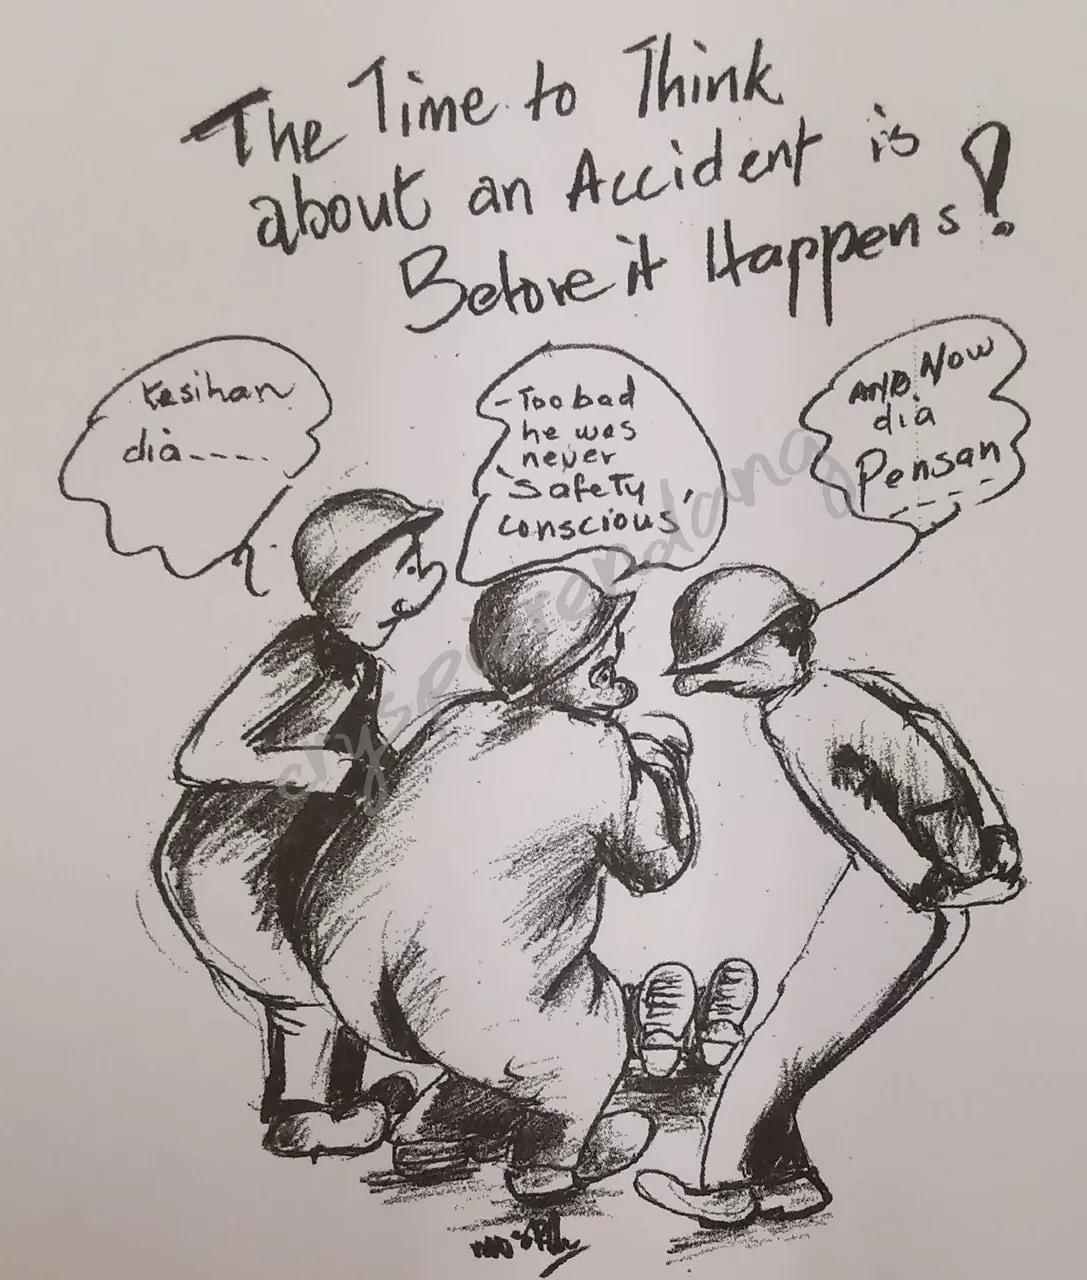 The Time to Think
about an Accident is
Before it Happens!
Kesihan
dia----.
-Too bad
he was
never
safety,
conscious
AND NOW
dia
Pensan